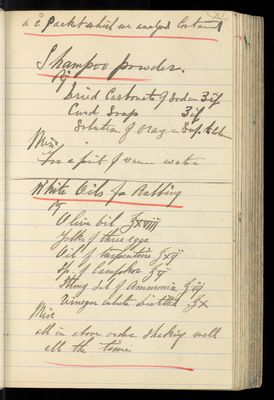 a 2 packet which we analysed Contained
Shampoo powder.
Rx
Dried Carbonate of Soda ʒii
Curd Soap ʒii
Solution of
Misc
For a pint of warm water
White Oils for Rubbing
Rx
Olive Oil ʒxviii
Yolks of three eggs
Oil of turpentine ʒxij
Sp. of Camphor ʒij
Strong Sol of Ammonia ʒiij
Vinegar white Distilled ʒx
Misc
all in above order shaking well
all the time